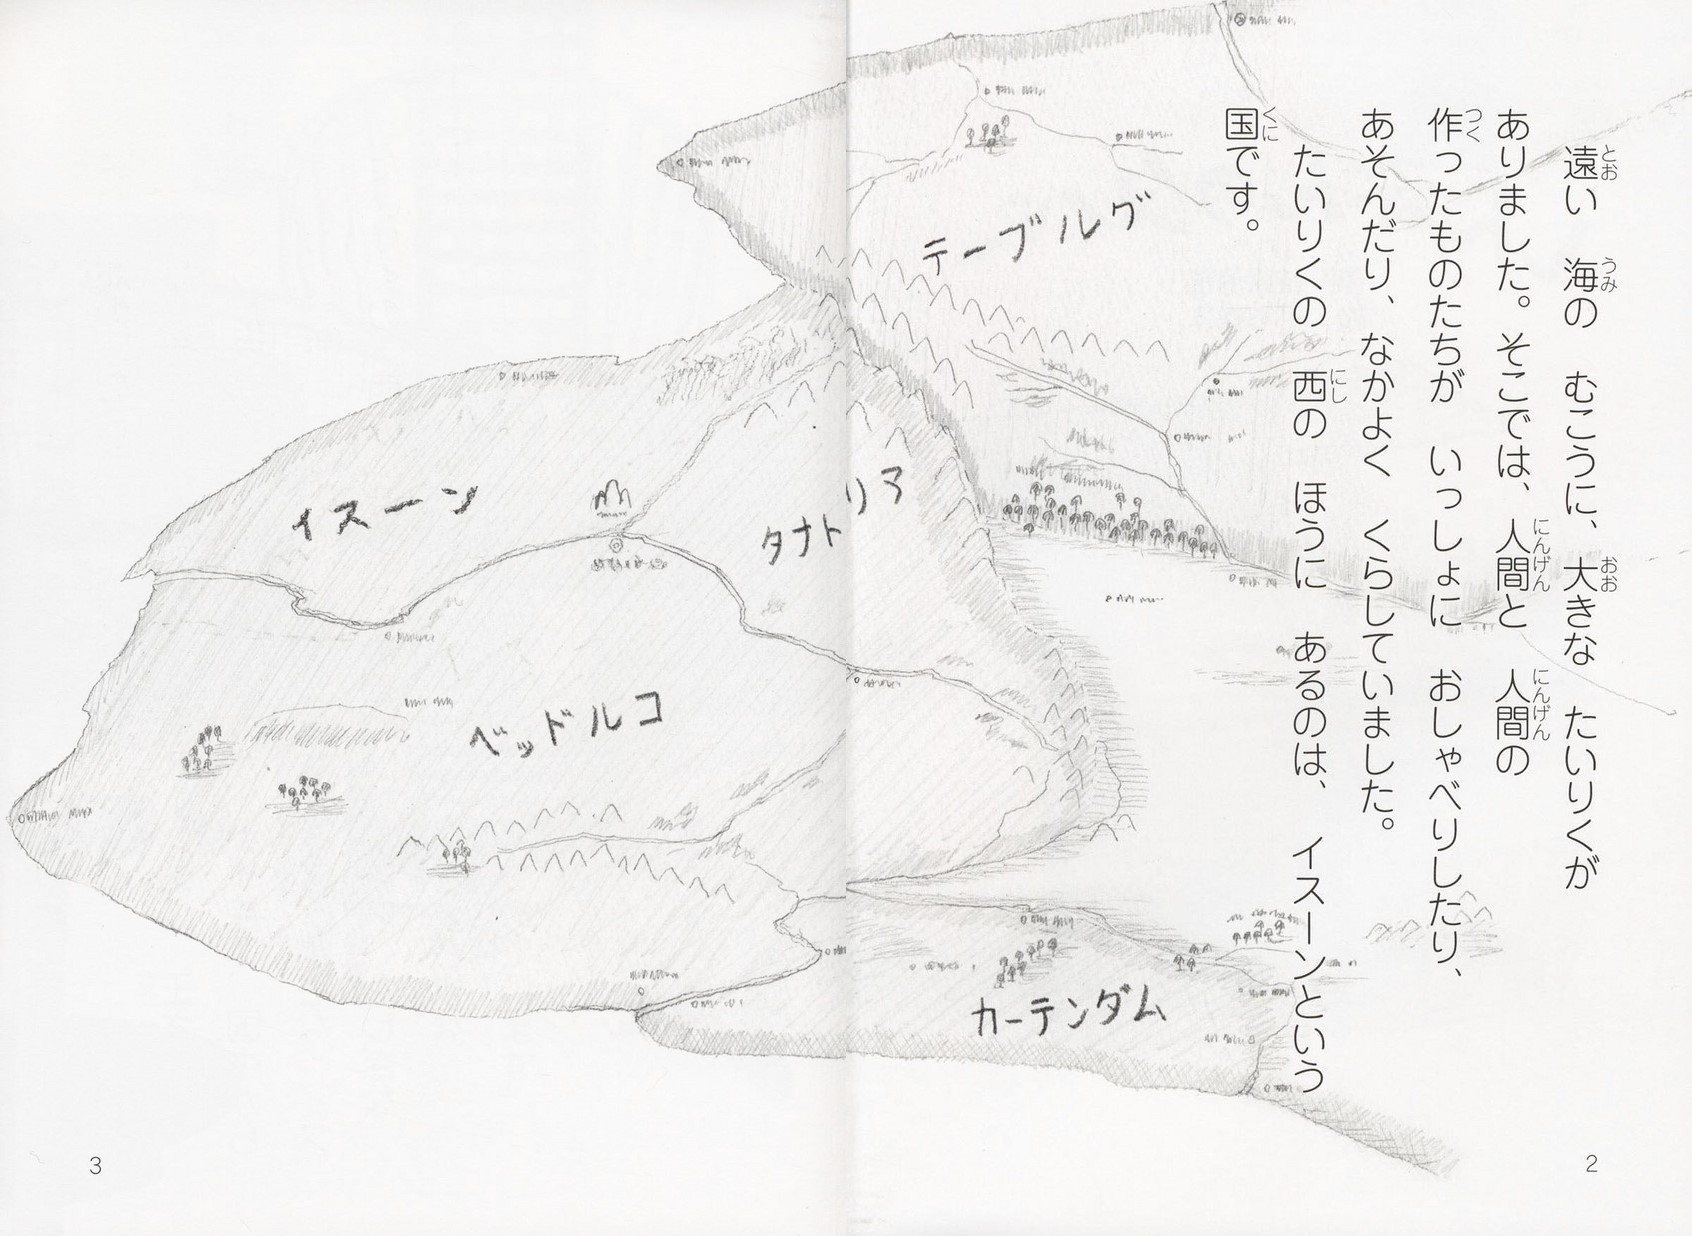 遠い　海の　むこうに、大きな　たいりくが
ありました。そこでは、人間と　人間の
作ったものたちが　いっしょに　おしゃべりしたり、
あそんだり、なかよく　くらしていました。
たいりくの　西の　ほうに　あるのは、イスーンという
国です。
テーブルグ
イスーン
タナトリア
ベッドルコ
カーテンダム
2
3